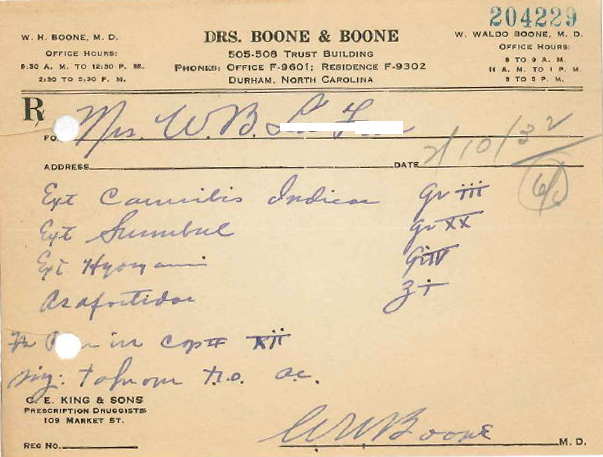 204229
W. H. BOONE, M. D.
OFFICE HOURS:
8:30 A. M. TO 12:30 P. M.
2:30 TO 5:30 P. M.
DRS. BOONE & BOONE
505-508 TRUST BUILDING
PHONES: OFFICE F-9601; RESIDENCE F-9302
DURHAM, NORTH CAROLINA
W. WALDO BOONE, M. D.
OFFICE HOURS:
8 TO 9 A. M.
11 A. M. TO 1 P. M.
3 TO 5 P. M.
℞
FO Mrs. W. B.
ADDRESS DATE 2/10/32
Ext Cannibis Indica gr iii
Ext Sumbul gr XX
Ext Hyoscyami
Asafoetidae
in cap XII
Sig: T.D. ac.
C. E. KING & SONS
PRESCRIPTION DRUGGISTS
109 MARKET ST.
REG NO. W Boone M. D.